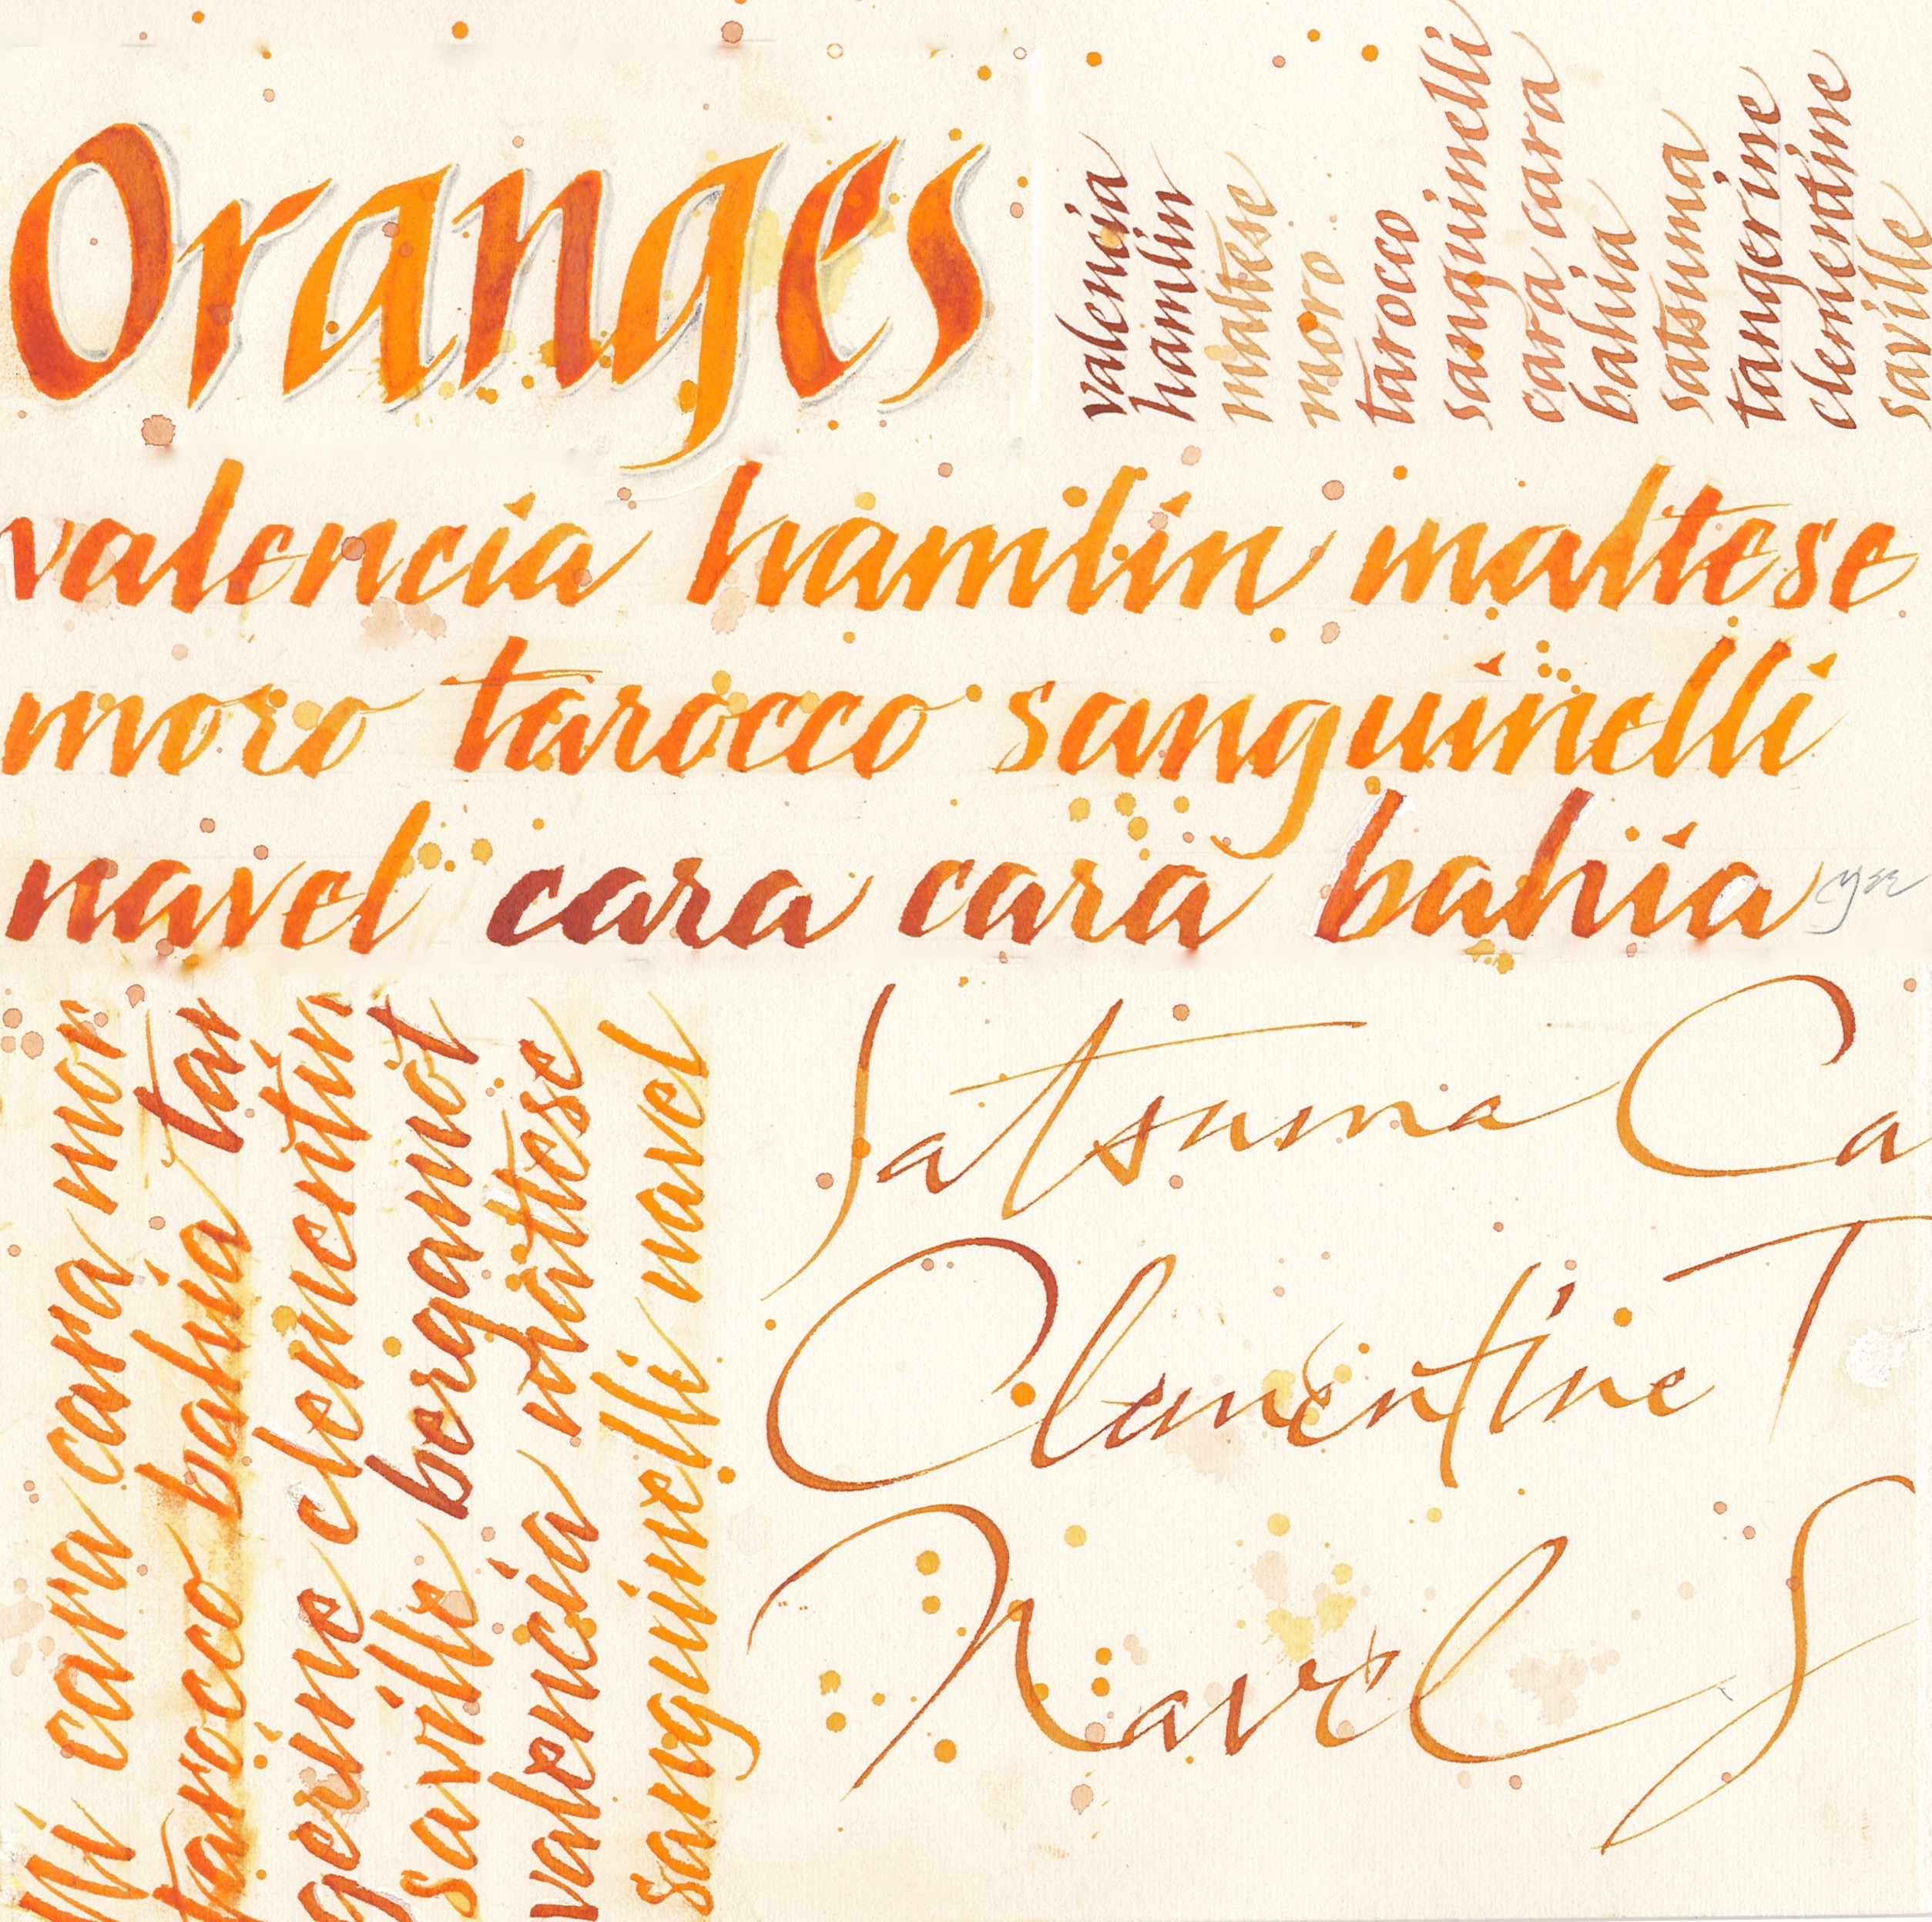 Oranges
valencia
hamlin
maltese
moro
tarocco
sanguinelli
cara cara
bahia
satsuma
tangerine
clementine
saville
valencia hamlin maltese
moro tarocco sanguinelli
navel cara cara bahia
lli cara cara mor
tarocco bahia tar
gerine clementin
saville bergamot
valencia maltese
sanguinelli navel
Satsuma Ca
Clementine T
Navel S